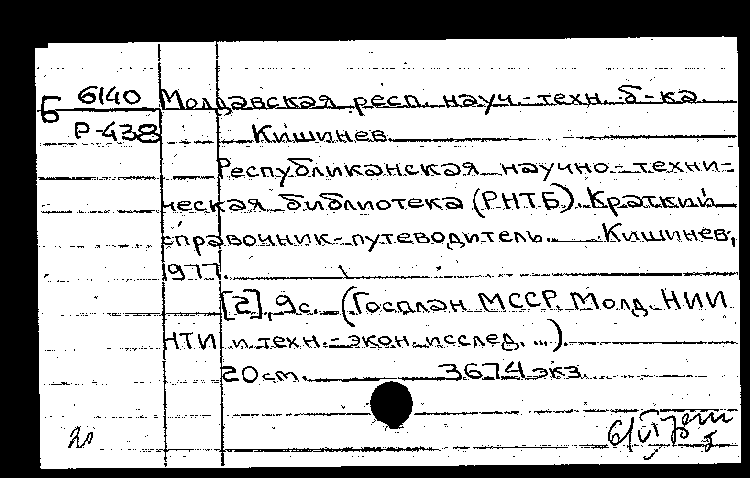 Б 6140 Молдавская респ. науч.-техн. б-ка.
Р-438 Кишинев.
Республиканская научно-техни-
ческая библиотека (РНТБ). Краткий
справочник-путеводитель. Кишинев,
1977.
[2], 9с. (Госплан МССР. Молд. НИИ
НТИ и техн.-экон. исслед. ...).
20 cm. 3674 экз.
20